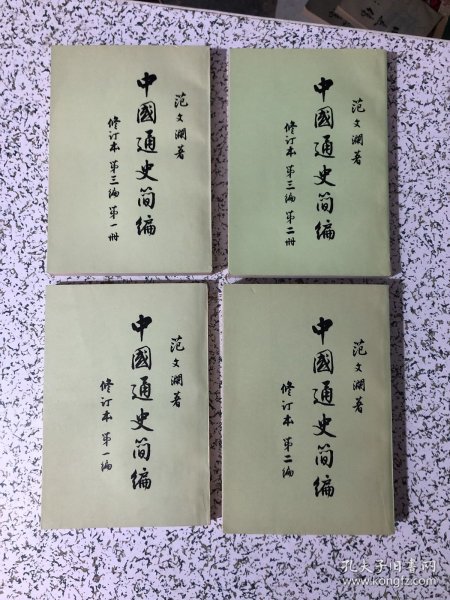 范文澜著
中國通史简编
修订本 第三编 第一册
范文澜著
中國通史简编
修订本 第三编 第二册
范文澜著
中國通史简编
修订本 第一编
范文澜著
中國通史简编
修订本 第二编
孔夫子旧书网